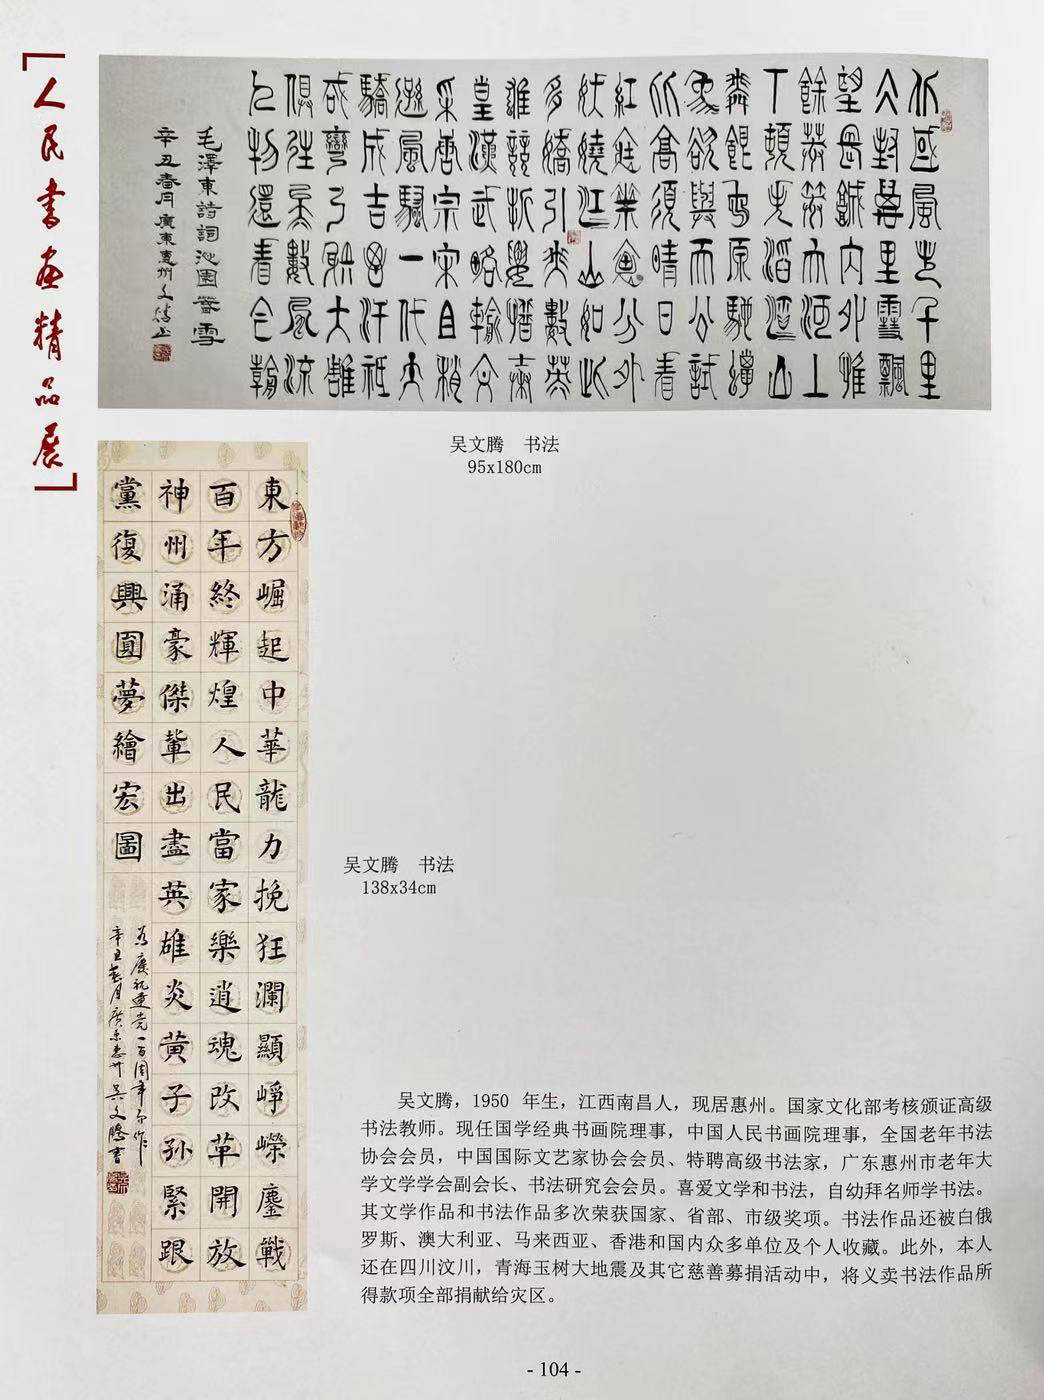 人民书画精品展
北國風光千里
冰封萬里雪飄
望長城內外惟
餘莽莽大河上
下頓失滔滔山
舞銀蛇原馳蠟
象欲與天公試
比高須晴日看
紅裝素裹分外
妖嬈江山如此
多嬌引無數英
雄競折腰惜秦
皇漢武略輸文
采唐宗宋祖稍
遜風騷一代天
驕成吉思汗祗
識彎弓射大雕
俱往矣數風流
人物還看今朝
毛澤東詩詞沁園春雪
辛丑春月廣東惠州文騰書
吴文腾 书法
95x180cm
東方崛起中華龍力挽狂瀾顯崢嶸鏖戰
百年終輝煌人民當家樂逍魂改革開放
神州涌豪傑輩出盡英雄炎黃子孫緊跟
黨復興圓夢繪宏圖
為慶祝建党一百周年而作
辛丑月廣東惠州吳文騰書
吴文腾 书法
138x34cm
吴文腾，1950 年生，江西南昌人，现居惠州。国家文化部考核颁证高级
书法教师。现任国学经典书画院理事，中国人民书画院理事，全国老年书法
协会会员，中国国际文艺家协会会员、特聘高级书法家，广东惠州市老年大
学文学学会副会长、书法研究会会员。喜爱文学和书法，自幼拜名师学书法。
其文学作品和书法作品多次荣获国家、省部、市级奖项。书法作品还被白俄
罗斯、澳大利亚、马来西亚、香港和国内众多单位及个人收藏。此外，本人
还在四川汶川，青海玉树大地震及其它慈善募捐活动中，将义卖书法作品所
得款项全部捐献给灾区。
- 104 -